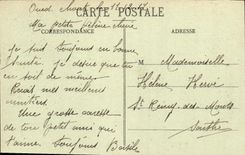 CARTE POSTALE
CORRESPONDANCE
ADRESSE
Ma petite Hélène
Je suis toujours en bonne
santé. Je désire que toi
en soit de même.
meilleurs
Une grosse caresse
de ton petit ami qui
t'aime toujours
Mademoiselle
Hélène Hervé
St Rémy des Monts
Sarthe